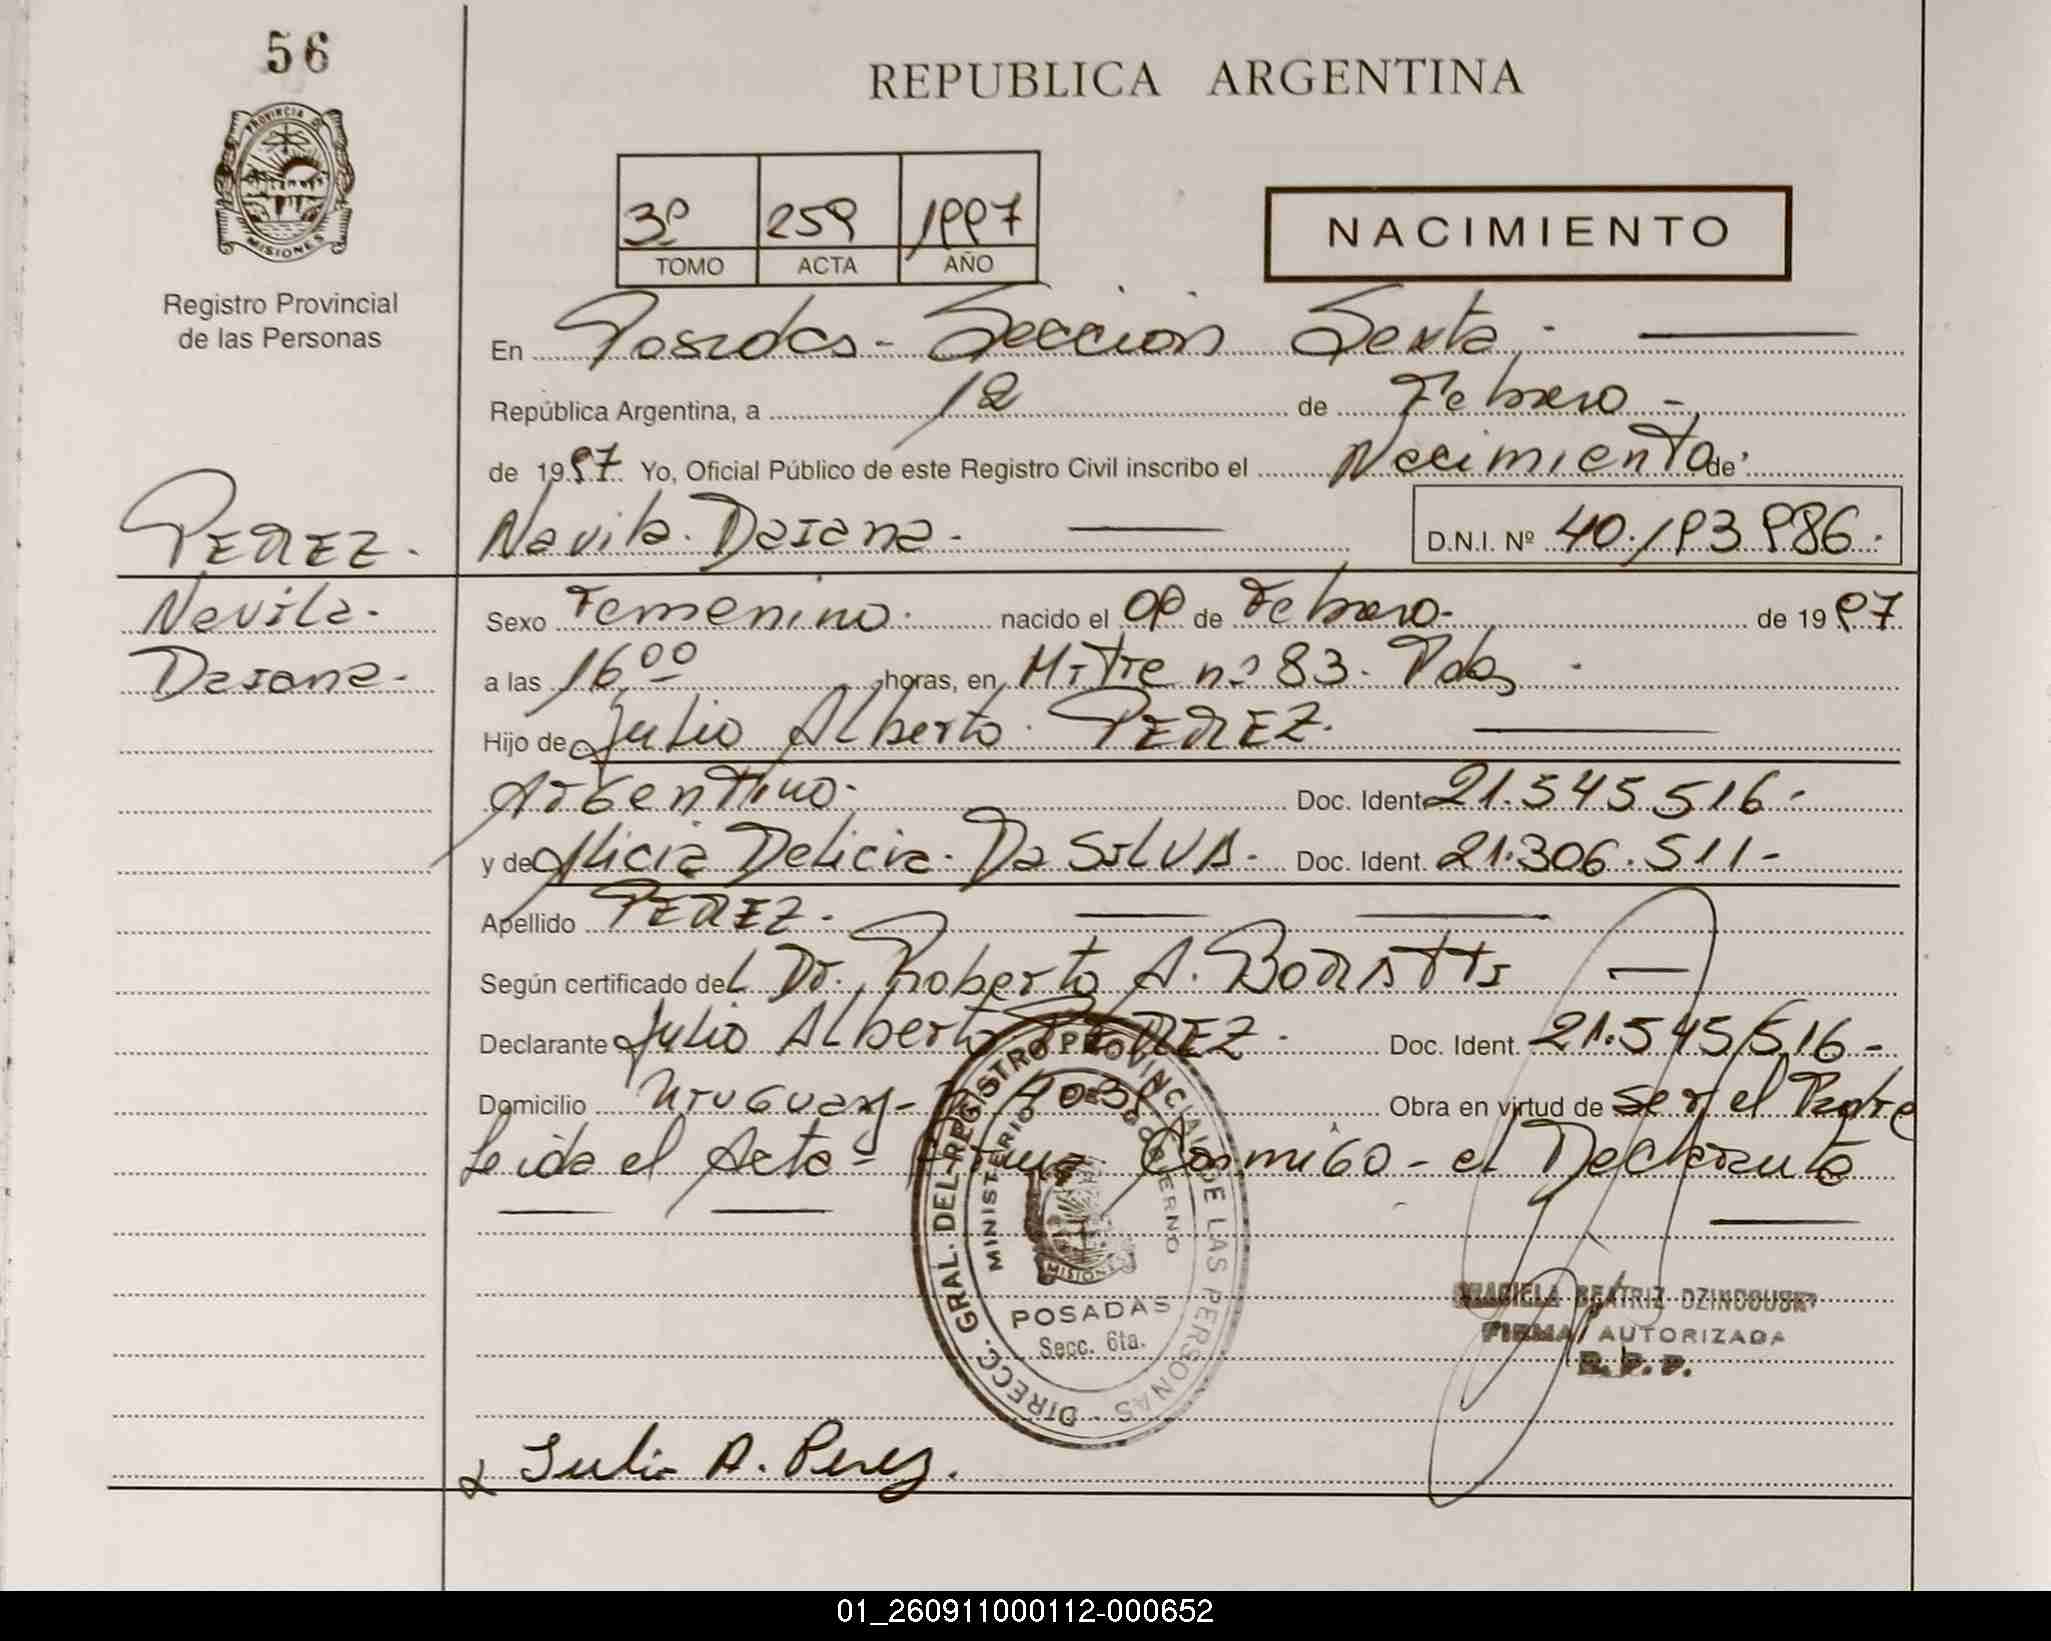 56
REPUBLICA ARGENTINA
PROVINCIA D
MISIONES
3º 259 1997
TOMO ACTA AÑO
NACIMIENTO
Registro Provincial
de las Personas
En Posadas - Sección Sexta. -
República Argentina, a 12 de Febrero -
de 1997 Yo, Oficial Público de este Registro Civil inscribo el Nacimiento de
PEREZ. Navila Daiana - D.N.I. Nº 40.193986.
Navila. Sexo Femenino. nacido el 09 de Febrero - de 1997
Daiana - a las 16 00 horas, en Mitre nº 83. Pdas
Hijo de Julio Alberto PEREZ.
Argentino. Doc. Ident. 21.545.516 -
y de Alicia Delicia Da SILVA - Doc. Ident. 21.306.511 -
Apellido PEREZ. -
Según certificado del Dr. Roberto A.
Declarante Julio Alberto PEREZ - Doc. Ident. 21.545.516 -
Domicilio Uruguay - Obra en virtud de ser el Padre
Leida el Acta - Firma Conmigo - el Declarante
DIRECC. GRAL. DEL REGISTRO PROVINCIAL DE LAS PERSONAS -
MINISTERIO DE GOBIERNO
MISIONES
POSADAS
Secc. 6ta.
GRACIELA BEATRIZ
FIRMA AUTORIZADA
Julio A. Perez.
01_260911000112-000652